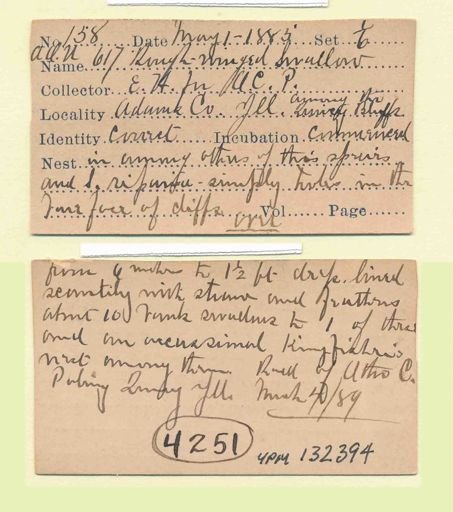 No. 158 Date May 1-1885 Set 1/6
A.O.U
Name 617 Rough-winged Swallow
Collector
Locality Adams Co. Ill. among the Quincy Bluffs
Identity Correct Incubation Commenced
Nest in among others of this species
and simply holes in the
face of cliffs Vol. Page
over
from 6 inches to 1½ ft deep. lined
scantily with straw and feathers
about 10 Bank swallows to 1 of these
and an occasional Kingfisher's
nest among them. Recd of Otho C.
Poling Quincy Ills. Mch 4/89
4251
UPM 132394